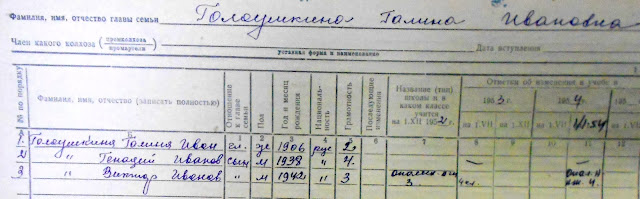 Фамилия, имя, отчество главы семьи Голоушкина Галина Ивановна
Член какого колхоза (промколхоза промартели)
уставная форма и наименование Дата вступления
№№ по порядку Фамилия, имя, отчество (записать полностью) Отношение к главе семьи Пол Год и месяц рождения Националь- ность Грамотность Последующие изменения Название (тип) школы и в каком классе учится на 1.XII 1952 г. Отметки об изменении в учебе
195 3 г. 195 4 г.
на 1.VII на 1.XII на 1.VII 1/1-54 на 1.VII
1 2 3 4 5 6 7 8 9 10 11 12
1. Голоушкина Галина Иван гл. же 1906 рус 2
2 " Генадий Иванов сын м 1938 " 4. —
3 " Виктор Иванов " м 1942 " 3
3 4 кл.